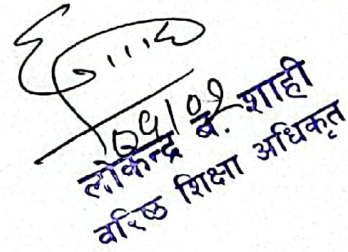 लोकेन्द्र ब. शाही
वरिष्ठ शिक्षा अधिकृत